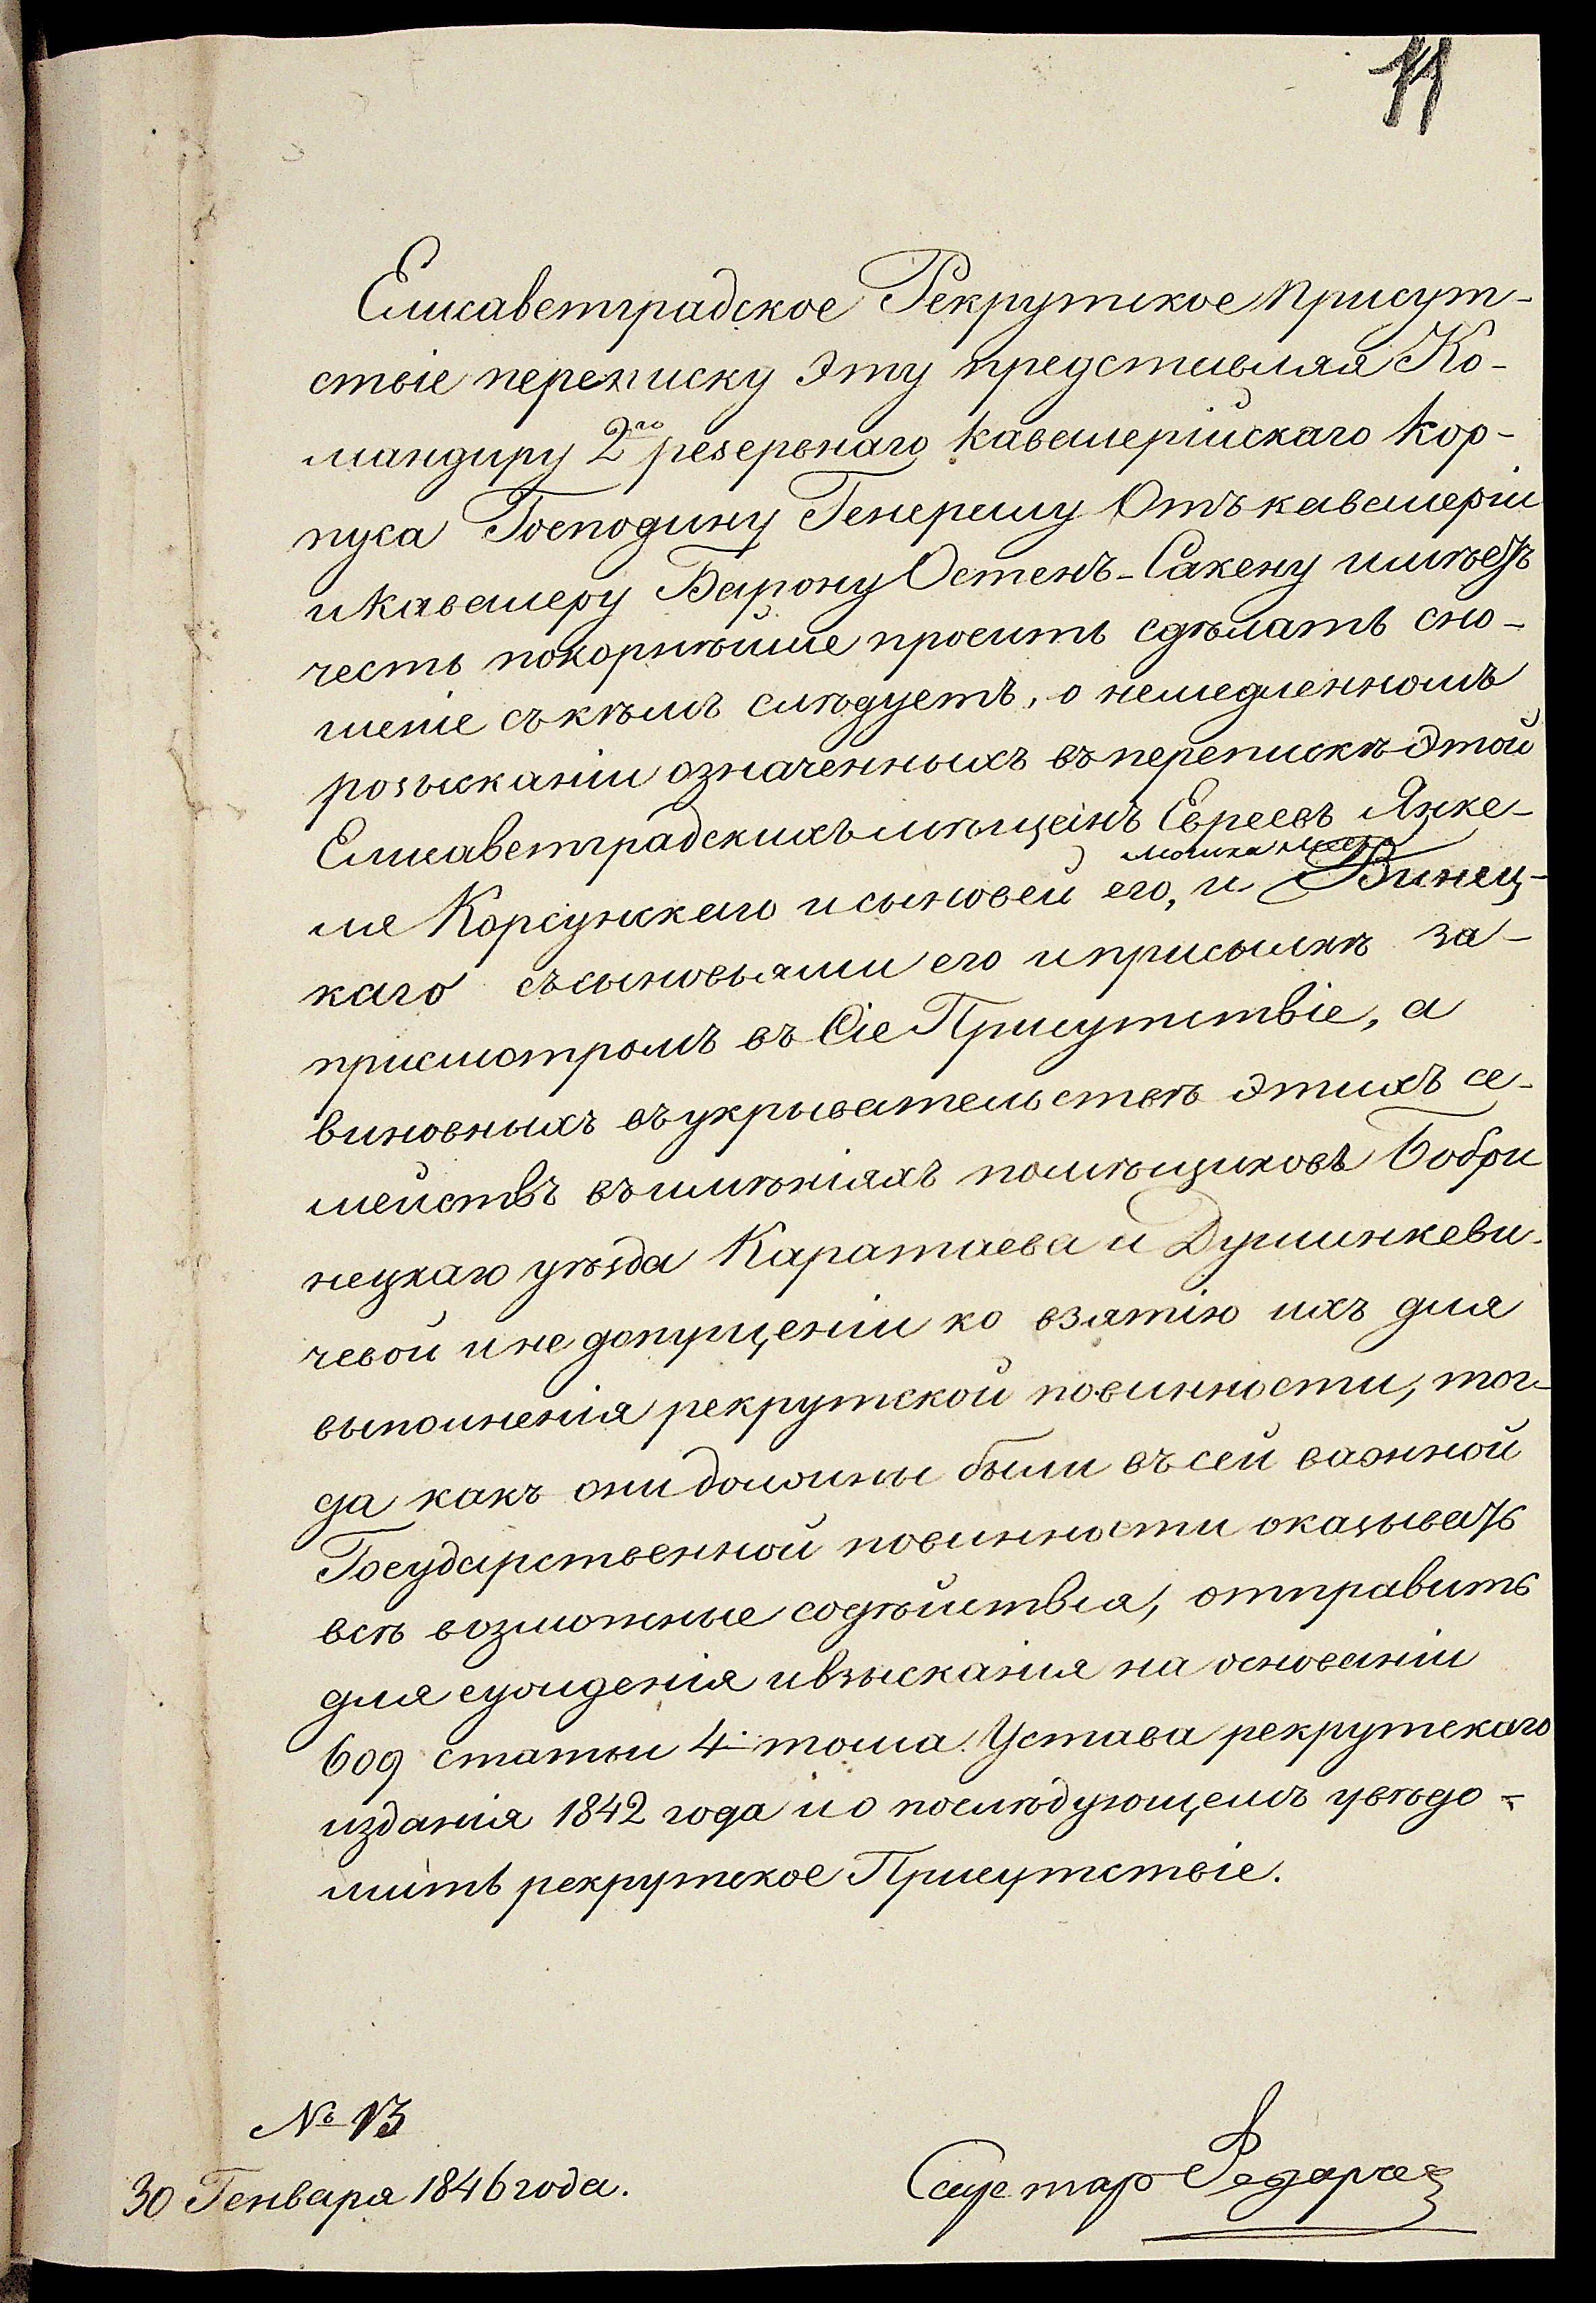 11
Елисаветградское Рекрутское присут-
ствіе переписку эту представляя Ко-
мандиру 2го резервнаго кавалерійскаго кор-
пуса Господину Генералу Отъ кавалеріи
и кавалеру Барону Остенъ-Сакену имѣетъ
честь покорнѣйше просить сдѣлать сно-
шеніе съ кѣмъ слѣдуетъ, о немедленномъ
розысканіи означенныхъ въ перепискѣ этой
Елисаветградскихъ мѣщанъ Евреевъ Янке-
ля Корсунскаго и сыновей его, и Винец-
каго съ сыновьями его и присылкѣ за-
присмотромъ въ Сіе Присутствіе, а
виновныхъ въ укрывательствѣ этихъ се-
мействъ въ имѣніяхъ помѣщиковъ Бобри
нецкаго уѣзда Каратаева и Душинкеви-
чевой и не допущеніи ко взятію ихъ для
выполненія рекрутской повинности, тог-
да какъ они должны были въ сей важной
Государственной повинности оказывать
всѣ возможные содѣйствія, отправить
для сужденія и взысканія на основаніи
609 статьи 4 тома Устава рекрутскаго
изданія 1842 года и о послѣдующемъ увѣдо-
мить рекрутское Присутствіе.
№ 13
30 Генваря 1846 года.